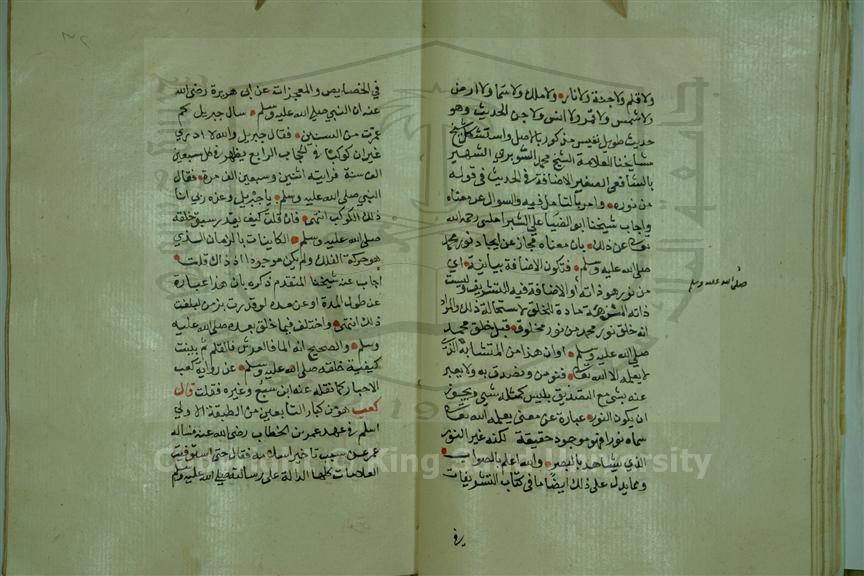 ولا قلم ولا جنة ولا نار ولا ملك ولا سما ولا ارض
ولا شمس ولا قمر ولا انس ولا جن الحديث وهو
حديث طويل نفيس مذكور بالاصل واستشكل شيخ
مشايخنا العلامة الشيخ محمد الشوبري الشهير
بالشافعي الصغير الاضافة في الحديث في قوله
من نوره وامر بالتامل فيه والسوال عن معناه
واجاب شيخنا ابو الضيا علي الشبراملسي رحمه الله
تعالى عن ذلك بان معناه مجاز عن ايجاد نور محمد
صلى الله عليه وسلم فتكون الاضافة بيانية اي
من نور هو ذاته او الاضافة فيه للتشريف وليست
ذاته المشرفة مادة الخلق لاستحالة ذلك والمراد
انه خلق نور محمد من نور مخلوق قبل خلق محمد
صلى الله عليه وسلم او ان هذا من المتشابه الذي
لا يعلمه الا الله تعالى فنومن ونصدق به ولا يعبر
عنه بشي مع التصديق بليس كمثله شيى ويجوز
ان يكون النور عبارة عن معنى يعلمه الله تعالى
سماه نورا فهو موجود حقيقة لكنه غير النور
الذي يشاهد بالبصر والله اعلم بالصواب
ومما يدل على ذلك ايضا ما في كتاب التشريفات
صلى الله عليه وسلم
في
في الخصايص والمعجزات عن ابي هريرة رضي الله
عنه ان النبي صلى الله عليه وسلم سال جبريل كم
عمرت من السنين فقال جبريل والله لا ادري
غير ان كوكبا في الحجاب الرابع يظهر في كل سبعين
الف سنة فرايته اثنين وسبعين الف مرة فقال
النبي صلى الله عليه وسلم يا جبريل وعزة ربي انا
ذلك الكوكب انتهى فان قلت كيف يقدر سبق خلقه
صلى الله عليه وسلم الكاينات بالزمان الذي
هو حركة الفلك ولم يكن موجودا اذ ذاك قلت
اجاب عنه شيخنا المتقدم ذكره بان هذا عبارة
عن طول المدة او عن مدة لو قدرت بزمن لبلغت
ذلك انتهى واختلف فيما خلق بعده صلى الله عليه
وسلم والصحيح انه الما فالعرش فالقلم ثم بينت
كيفية خلقه صلى الله عليه وسلم عن رواية كعب
الاحبار كما نقله عنه ابن سبع وغيره فقلت قال
كعب هو من كبار التابعين من الطبقة الاولى
اسلم في عهد عمر بن الخطاب رضي الله عنه فساله
عمر عن سبب تاخير اسلامه فقال حتى استوفيت
العلامات كلها الدالة على رسالته صلى الله عليه وسلم